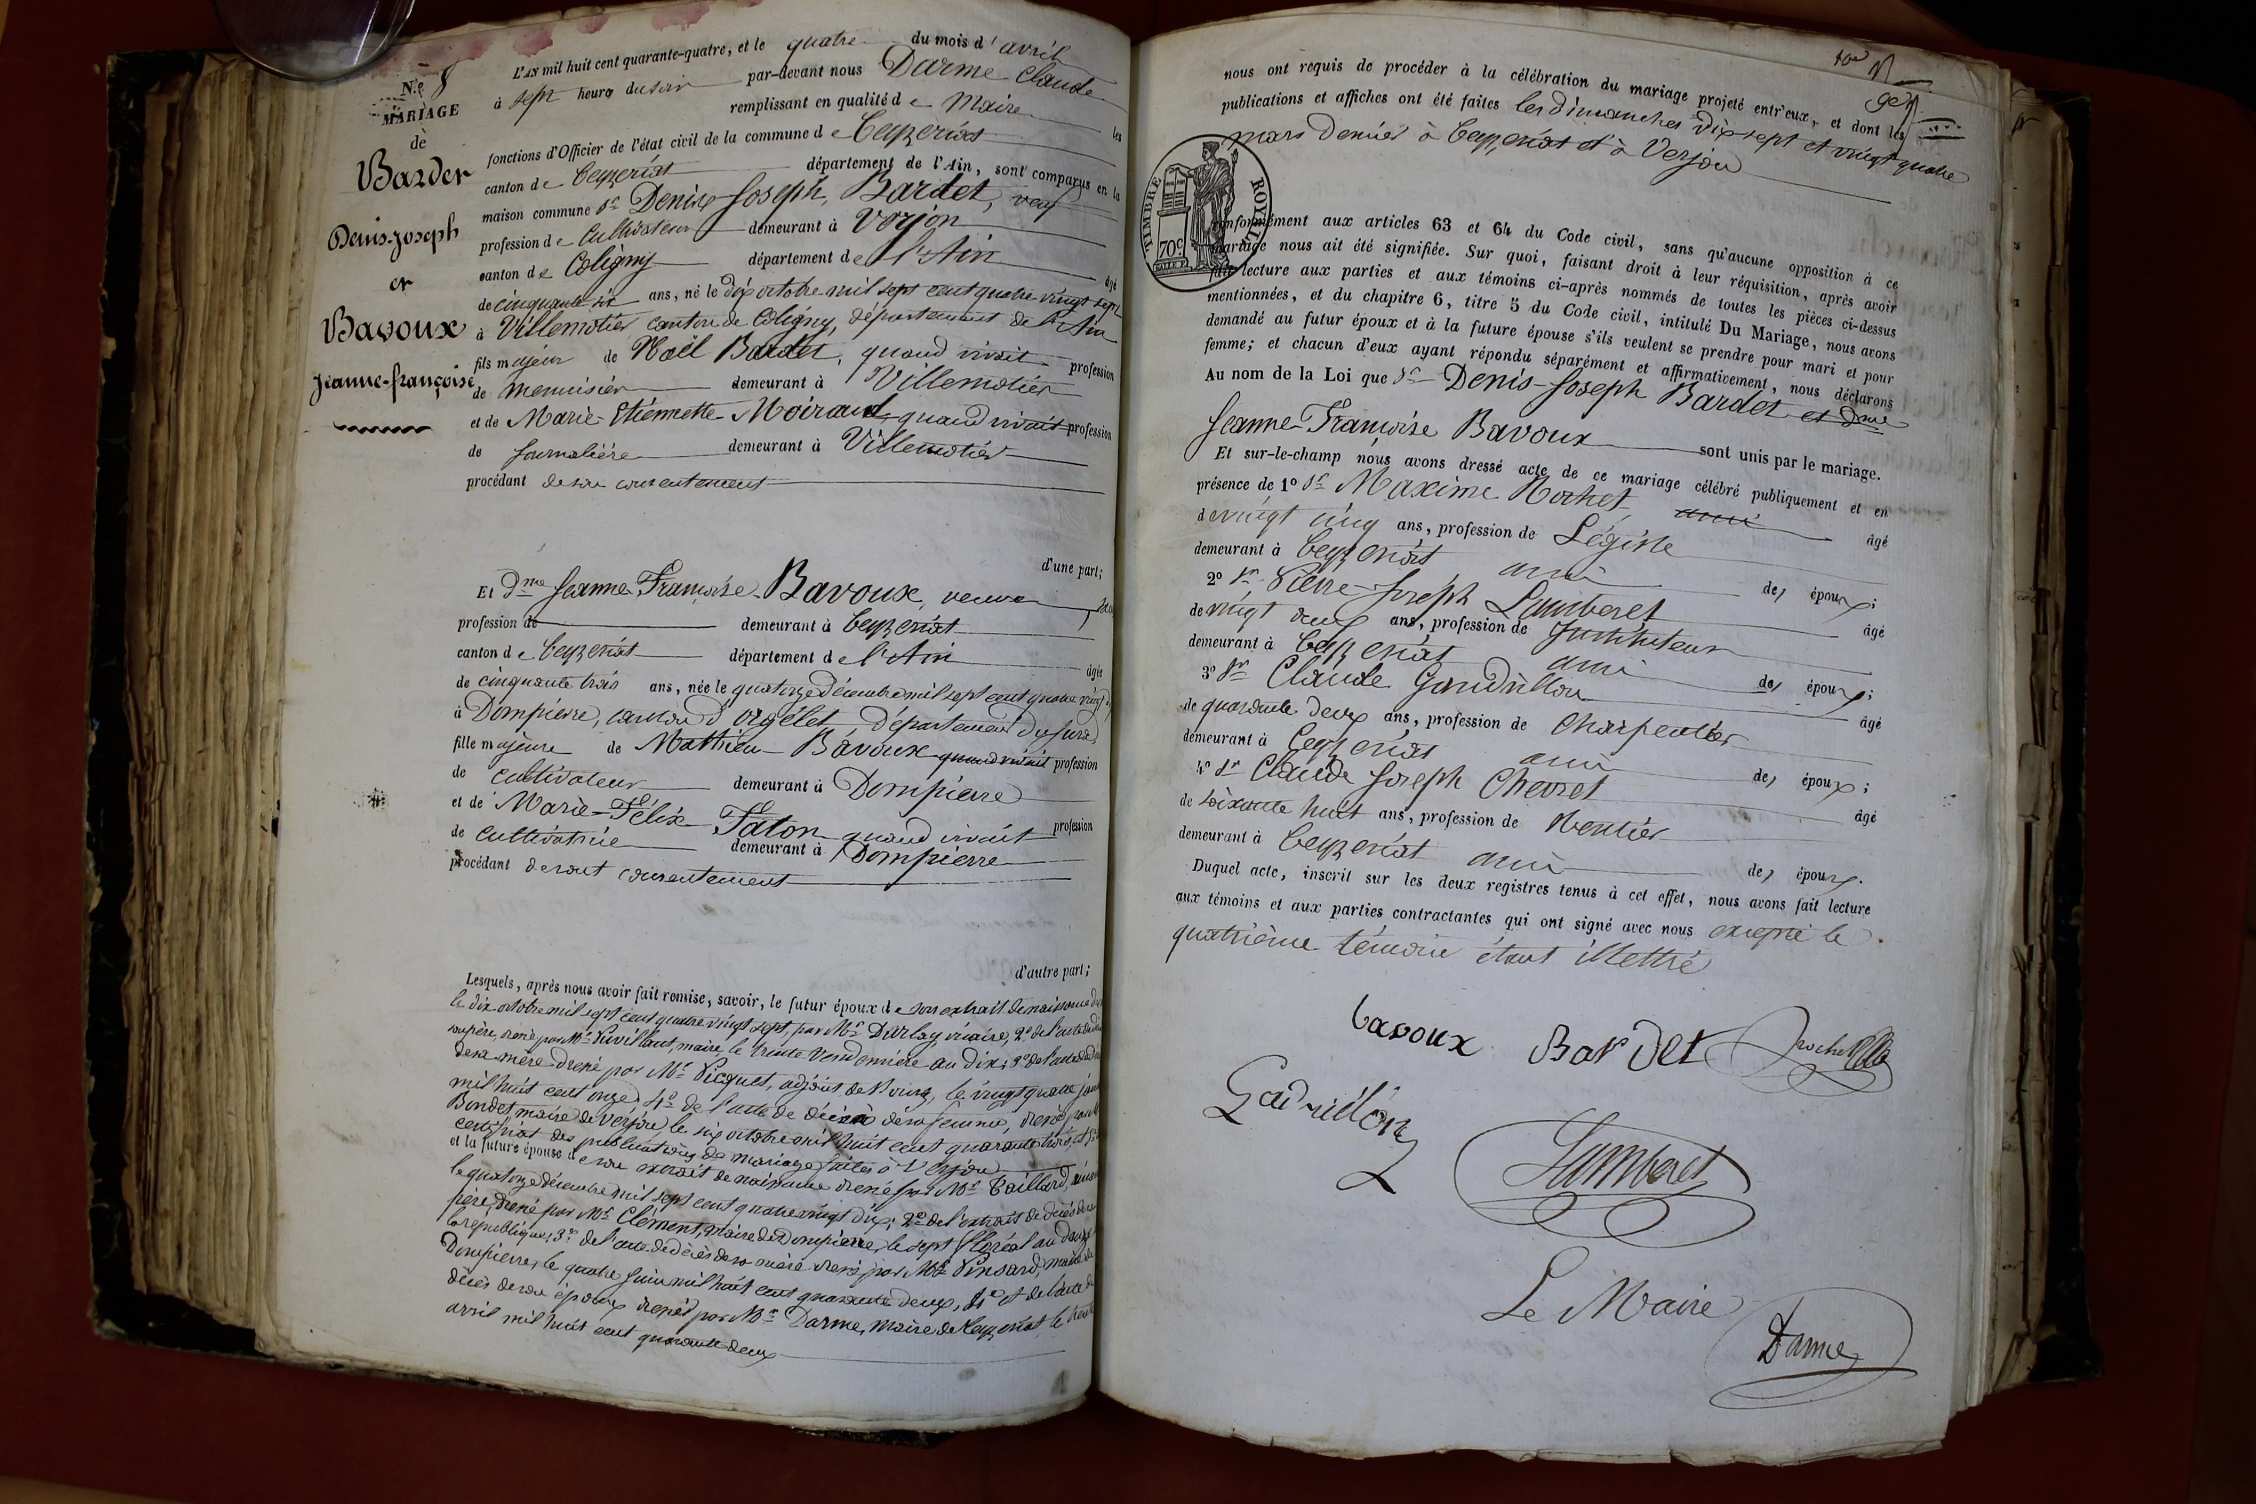 N.o 8
MARIAGE
de
Bardet
Denis-Joseph
et
Bavoux
Jeanne-françoise
L'AN mil huit cent quarante-quatre, et le quatre du mois d'avril
à sept heures du soir par-devant nous Darme Claude
remplissant en qualité de Maire les
fonctions d'Officier de l'état civil de la commune de Ceyzeriat
canton de Ceyzeriat département de l'Ain, sont comparus en la
maison commune Sr Denis Joseph, Bardet, veuf
profession de Cultivateur demeurant à Verjon
canton de Coligny département de l'Ain âgé
de cinquante six ans, né le dix octobre mil sept cent quatre vingt sept
à Villemotier canton de Coligny, département de l'Ain
fils majeur de Noël Bardet, quand vivait profession
de menuisier demeurant à Villemotier
et de Marie Etiennette Moiraud, quand vivait profession
de Journalière demeurant à Villemotier
procédant de son consentement
d'une part;
Et Dme Jeanne Françoise Bavoux, veuve
profession de demeurant à Ceyzeriat
canton de Ceyzeriat département de l'Ain âgée
de cinquante trois ans, née le quatorze décembre mil sept cent quatre vingt
à Dompierre, canton d'orgélet, département du Jura
fille majeure de Mathieu Bavoux quand vivait profession
de cultivateur demeurant à Dompierre
et de Marie-Félix Faton quand vivait profession
de cultivatrice demeurant à Dompierre
procédant de son consentement
d'autre part;
Lesquels, après nous avoir fait remise, savoir, le futur époux de son extrait de naissance du
le dix octobre mil sept cent quatre vingt sept, par Mr Darlay, vicaire, 2o de l'acte de
son père, dressé par Mr Vuvillaut, maire, le trente Vendemiere an dix; 3o de l'acte de
de sa mère dressé par Mr Picquet, adjoint de Bourg, le vingt quatre
mil huit cent onze; 4o de l'acte de décès de sa femme, dressé par Mr
Bondet, maire de Verjon, le six octobre mil huit cent quarante trois, et 5o
certificat des publications de mariage faites à Verjon
et la future épouse de son extrait de naissance dressé par Mr Caillard,
le quatorze décembre mil sept cent quatre vingt dix; 2o de l'extrait de décès de
père, dressé par Mr Clément, Maire de Dompierre, le sept floréal an
la république; 3o de l'acte de décès de sa mère dressé par Mr Pinsard, maire de
Dompierre, le quatre Juin mil huit cent quarante deux, 4o et de l'acte de
décès de son époux dressé par Mr Darme, Maire de Ceyzeriat le
avril mil huit cent quarante deux
nous ont requis de procéder à la célébration du mariage projeté entr'eux, et dont les
publications et affiches ont été faites les dimanches dix sept et vingt quatre
mars dernier à Ceyzeriat et à Verjon
TIMBRE ROYAL
70c
conformément aux articles 63 et 64 du Code civil, sans qu'aucune opposition à ce
mariage nous ait été signifiée. Sur quoi, faisant droit à leur réquisition, après avoir
fait lecture aux parties et aux témoins ci-après nommés de toutes les pièces ci-dessus
mentionnées, et du chapitre 6, titre 5 du Code civil, intitulé Du Mariage, nous avons
demandé au futur époux et à la future épouse s'ils veulent se prendre pour mari et pour
femme; et chacun d'eux ayant répondu séparément et affirmativement, nous déclarons
Au nom de la Loi que Sr Denis-Joseph Bardet et Dme
Jeanne-Françoise Bavoux sont unis par le mariage.
Et sur-le-champ nous avons dressé acte de ce mariage célébré publiquement et en
présence de 1o Sr Maxime Rochet ami âgé
de vingt cinq ans, profession de Légiste
demeurant à Ceyzeriat ami des époux;
2o Sr Pierre Joseph Lamberet âgé
de vingt deux ans, profession de Instituteur
demeurant à Ceyzeriat ami des époux;
3o Sr Claude Gandrillon âgé
de quarante deux ans, profession de Charpentier
demeurant à Ceyzeriat ami des époux;
4o Sr Claude Joseph Chevret âgé
de soixante huit ans, profession de Rentier
demeurant à Ceyzeriat ami des époux.
Duquel acte, inscrit sur les deux registres tenus à cet effet, nous avons fait lecture
aux témoins et aux parties contractantes qui ont signé avec nous excepté le
quatrième témoin étant illettré
bavoux Bardet Rochet
Gadrillon
Lamberet
Le Maire
Darme